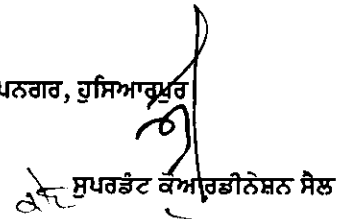 ਪਨਗਰ, ਹੁਸਿਆਰਪੁਰ
ਸੁਪਰਡੰਟ ਕੋਆਰਡੀਨੇਸ਼ਨ ਸੈਲ